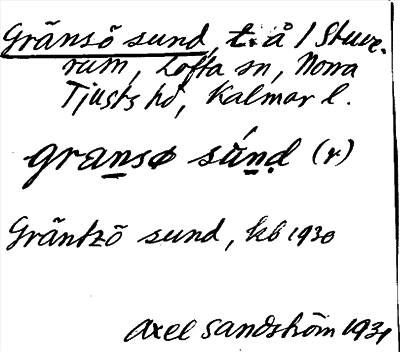 Gränsö sund, t. å / Stuve-
rum, Lofta sn, Norra
Tjusts hd, Kalmar l.
gransø sún̠ḍ (r)
Gräntzö sund, kb 1930
Axel Sandström 1931